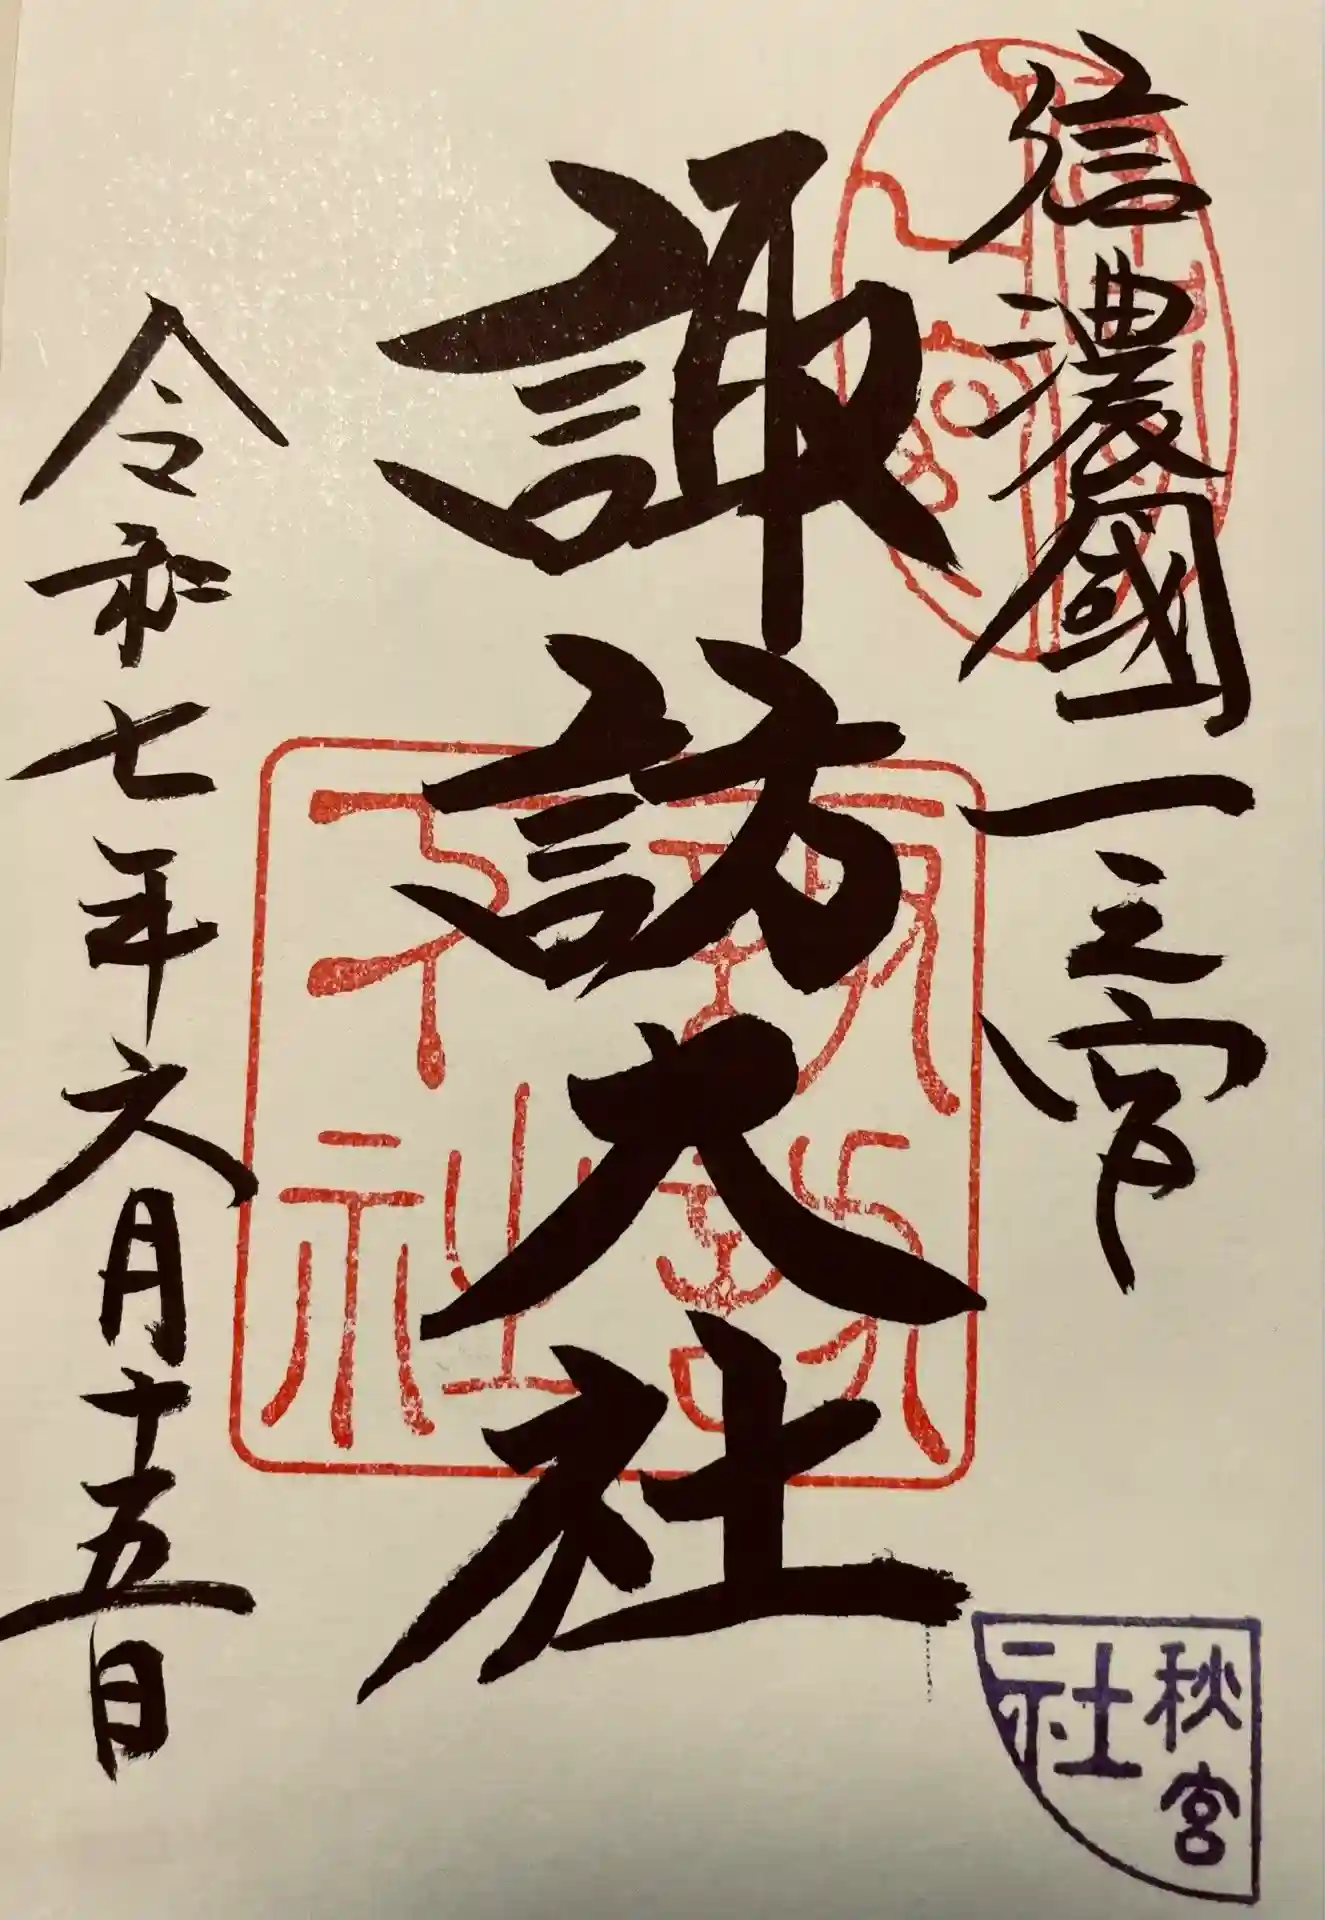 信濃國一之宮
諏訪大社
令和七年六月十五日
秋宮
社